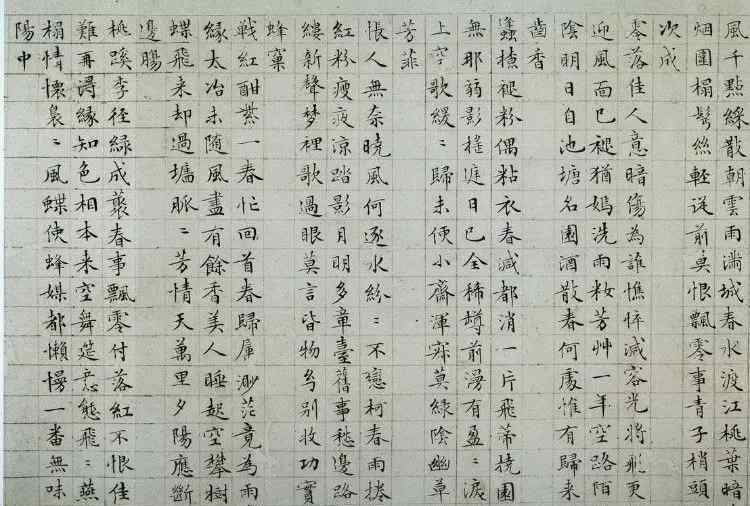 風千點綵散朝雲雨滿城春水渡江桃葉暗
烟圍榻鬢絲輕從前莫恨飄零事青子梢頭
次成
零落佳人意暗傷為誰憔悴減容光將飛更
迎風面已褪猶嫣洗雨妝芳艸一年空路陌
陰明日自池塘名園酒散春何處惟有歸来
齒香
蜂撩褪粉偶粘衣春減都消一片飛蒂撓園
無那弱影搖庭日已全稀樽前漫有盈〻淚
上空歌緩〻歸未便小齋渾寂莫綠陰幽草
芳菲
悵人無奈曉風何逐水紛〻不戀柯春雨捲
紅粉瘦夜涼踏影月明多章臺舊事愁邊路
縷新聲夢裡歌過眼莫言皆物別收功實
蜂窠
戰紅酣紫一春忙回首春歸屬渺茫竟為雨
緣太冶未隨風盡有餘香美人睡起空攀樹
蝶飛来却過墻脈〻芳情天萬里夕陽應斷
邊腸
桃蹊李徑綠成叢春事飄零付落紅不恨佳
難再得緣知色相本来空舞筵意態飛〻燕
榻情懷裊〻風蝶使蜂媒都懶慢一番無味
陽中